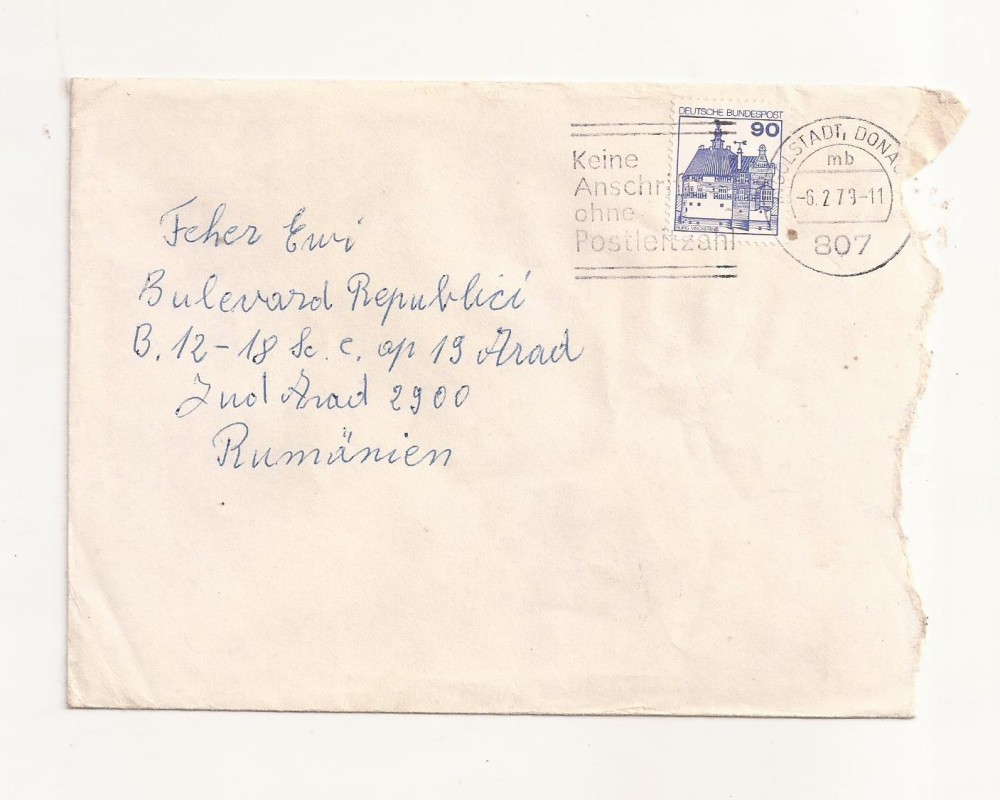 DEUTSCHE BUNDESPOST
90
BURG VISCHERING
Keine
Anschr
ohne
Postleitzahl
OLSTADT, DONA
mb
-6.2.79-11
807
Feher Ewi
Bulevard Republici
B. 12-18 Sc. C. ap 19 Arad
Jud Arad 2900
Rumänien